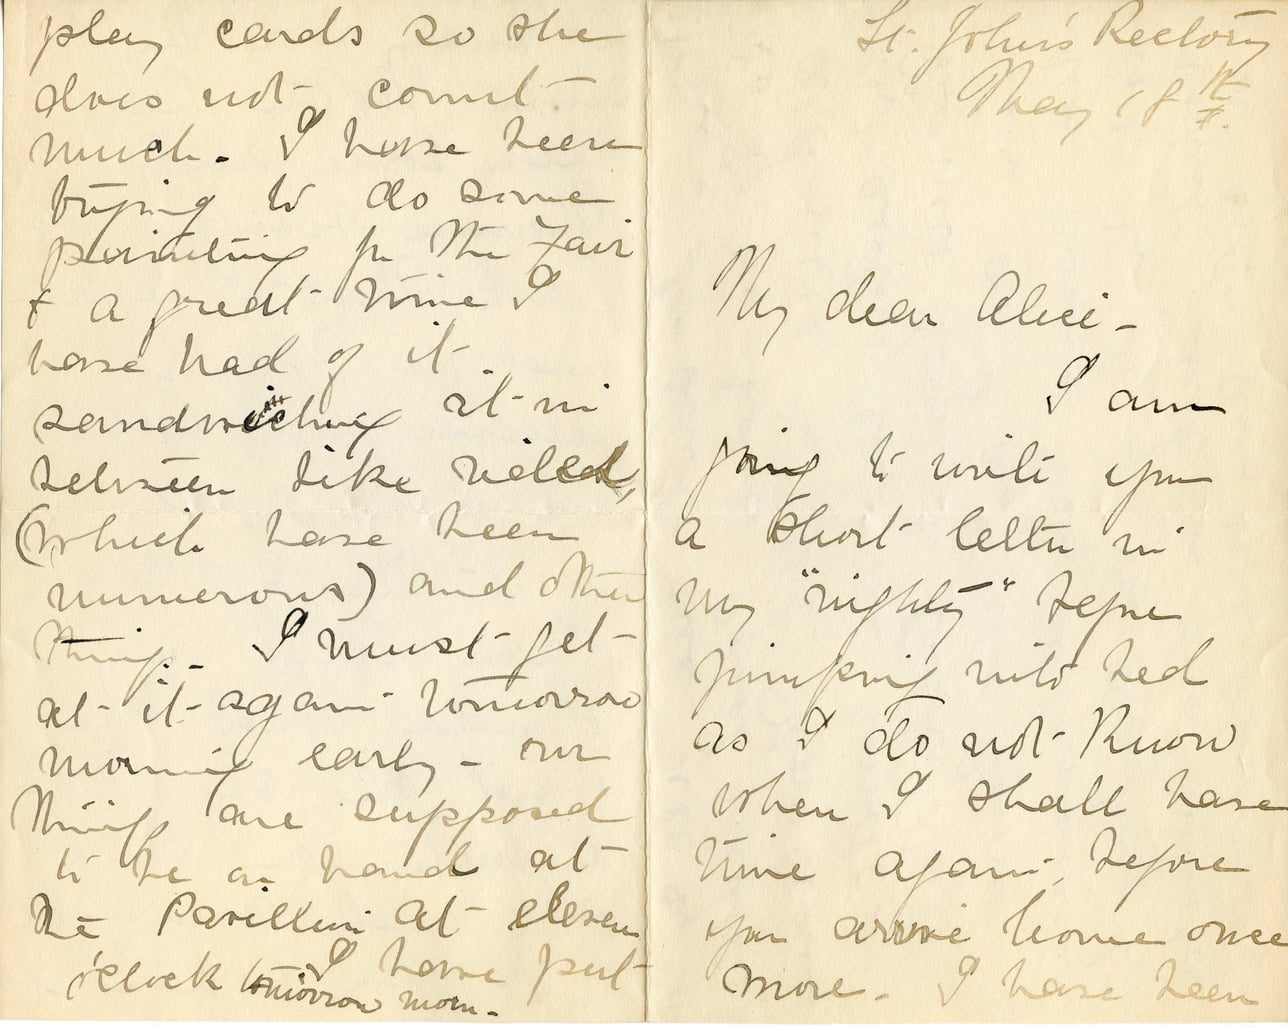 St. John's Rectory
May 18th
My dear Alice -
I am
going to write you
a short letter in
my "nighty" before
jumping into bed
as I do not know
when I shall have
time again, before
you arrive home once
more. I have been
play cards so she
does not count
much. I have been
trying to do some
painting for the Fair
& a great time I
have had of it
sandwiching it in
between bike rides,
(which have been
numerous) and other
things. I must get
at it again tomorrow
morning early - our
things are supposed
to be on hand at
the Pavillion at eleven
o'clock tomorrow morn. I have put